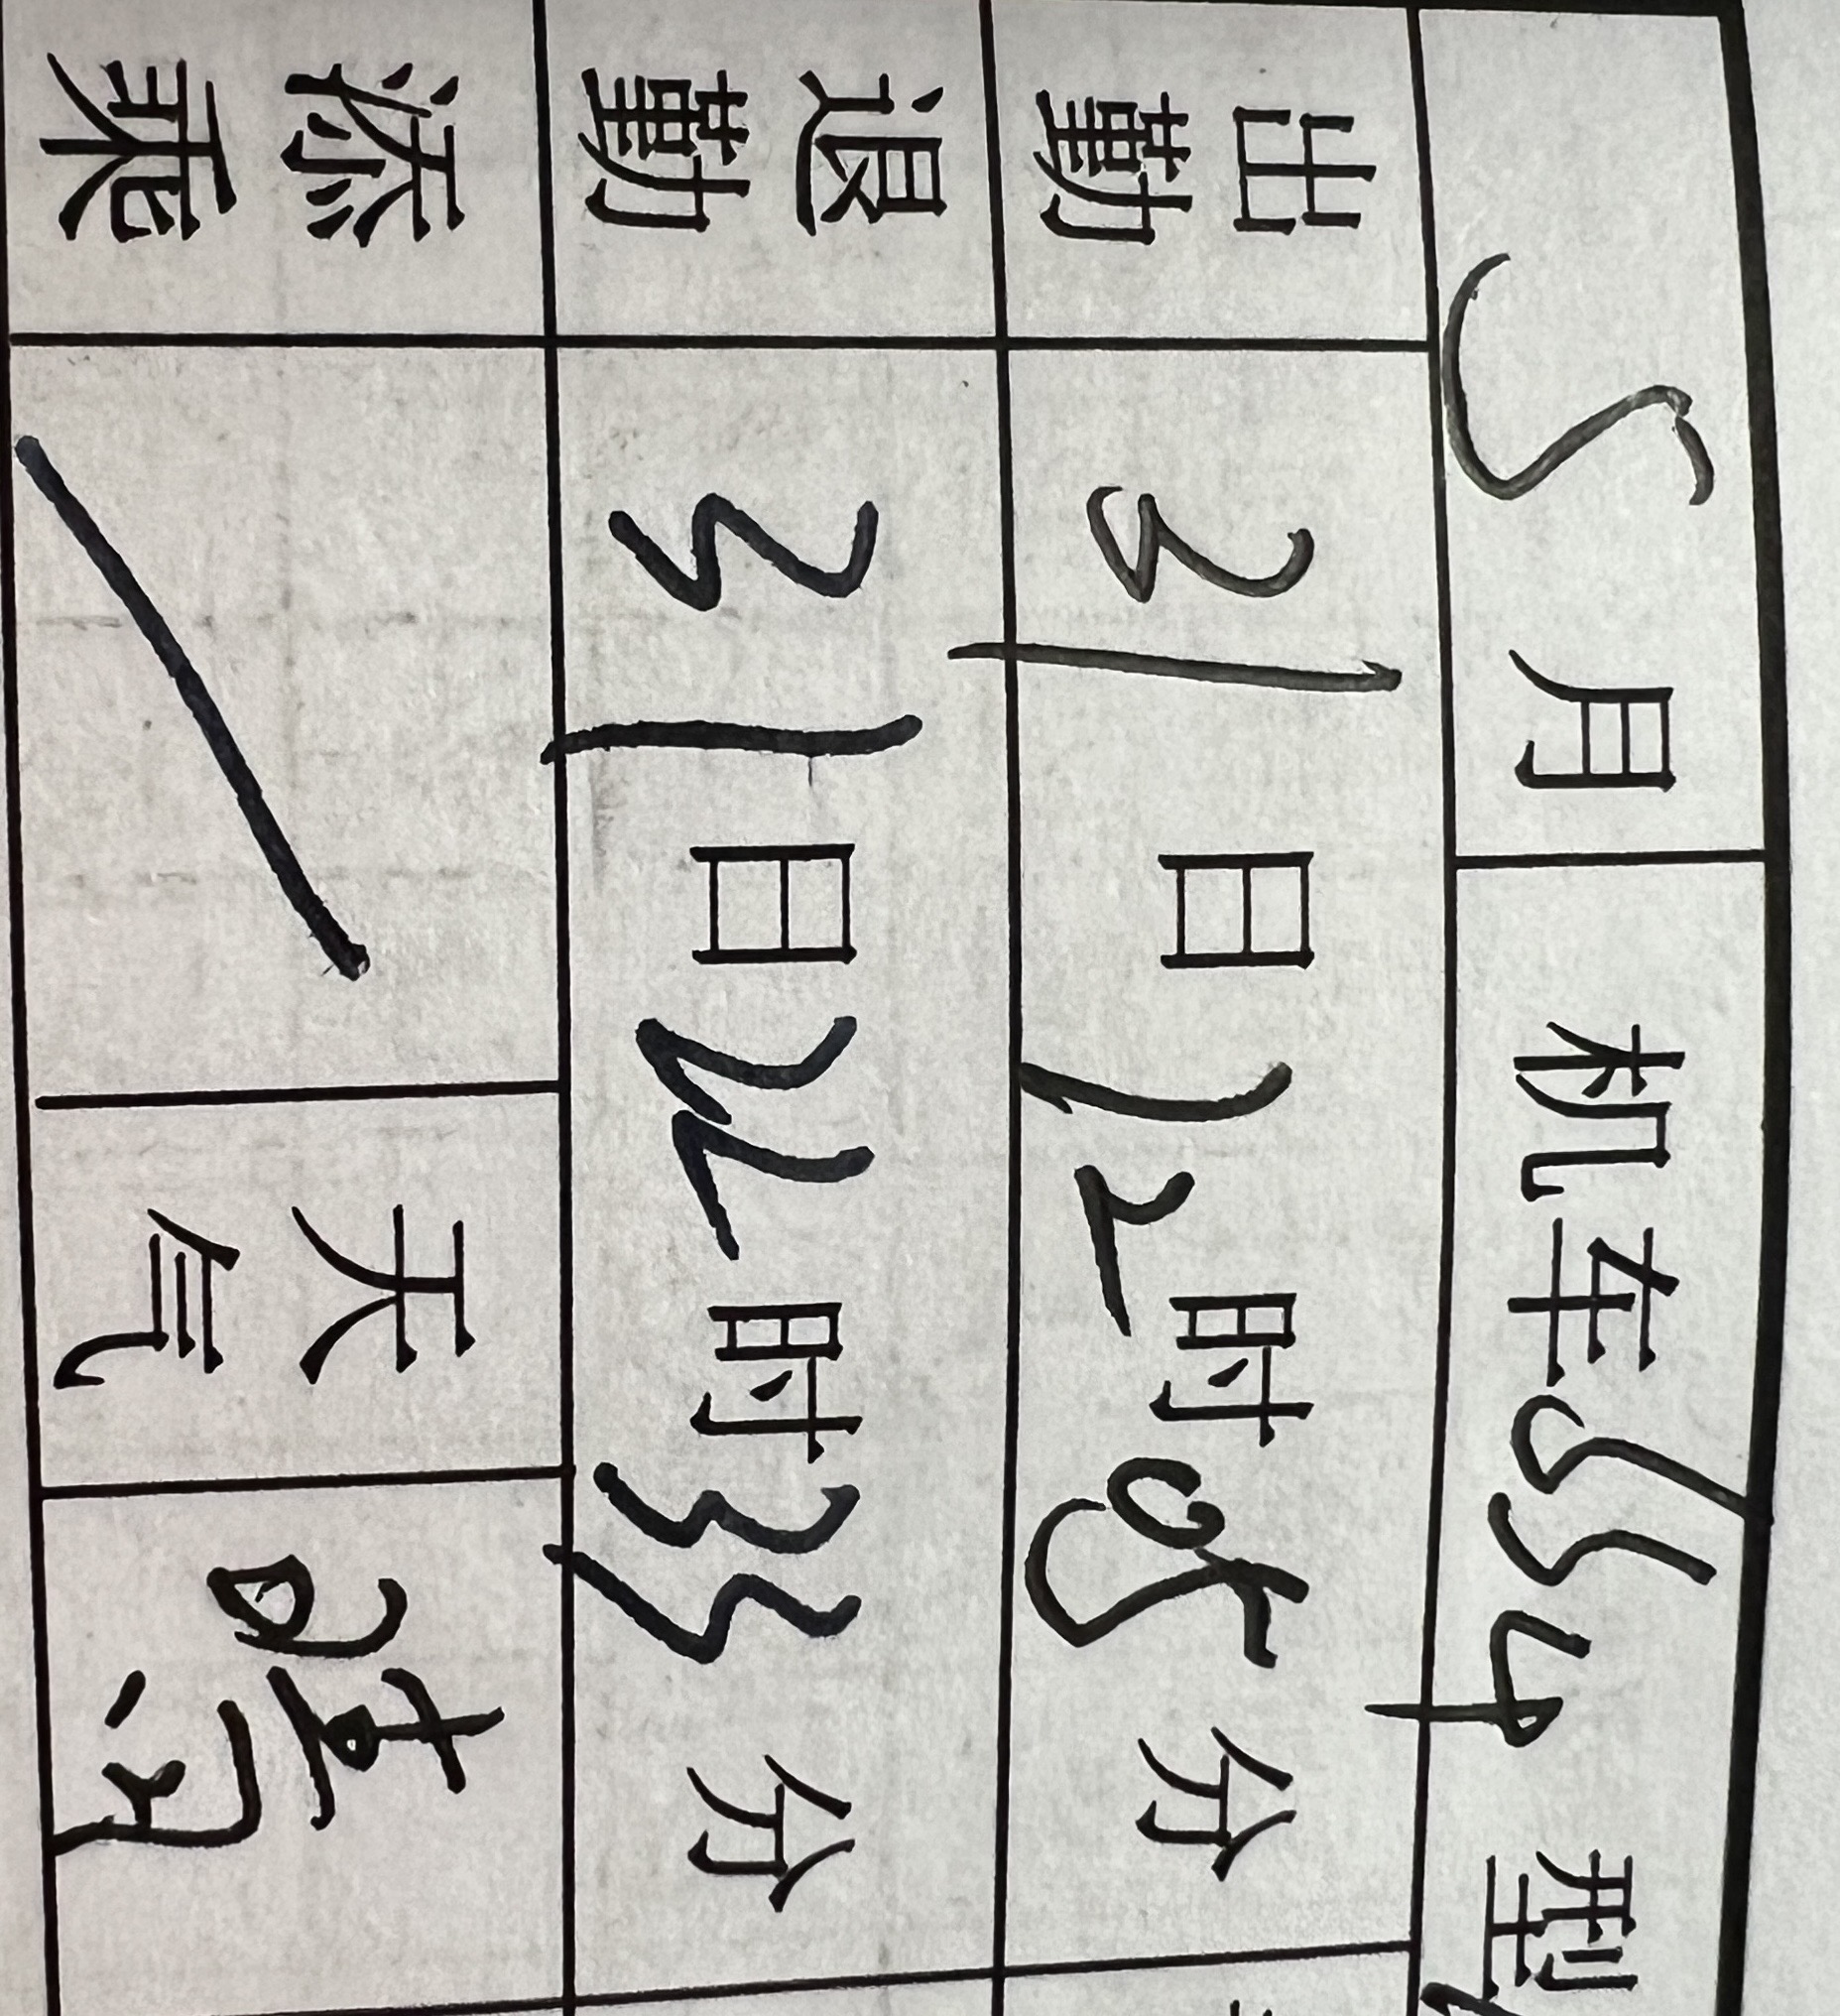 5月 机车SS4型
出勤 31日12时05分
退勤 31日22时35分
添乘 / 天气 晴